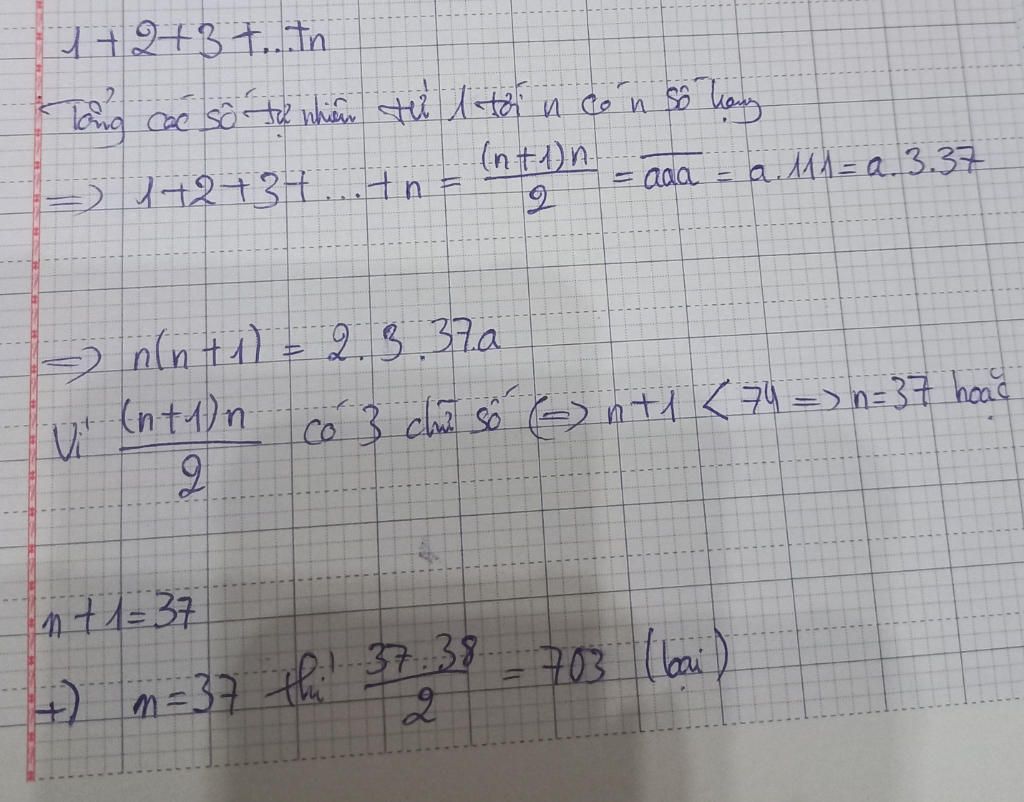 1+2+3+...+n
Tổng các số tự nhiên từ 1 tới n có n số hạng
=> 1+2+3+...+n = \frac{(n+1)n}{2} = \overline{aaa} = a.111 = a.3.37
=> n(n+1) = 2.3.37.a
Vì \frac{(n+1)n}{2} có 3 chữ số (=> n+1 < 74 => n=37 hoặc
n+1=37
+) n=37 thì \frac{37.38}{2} = 703 (loại)